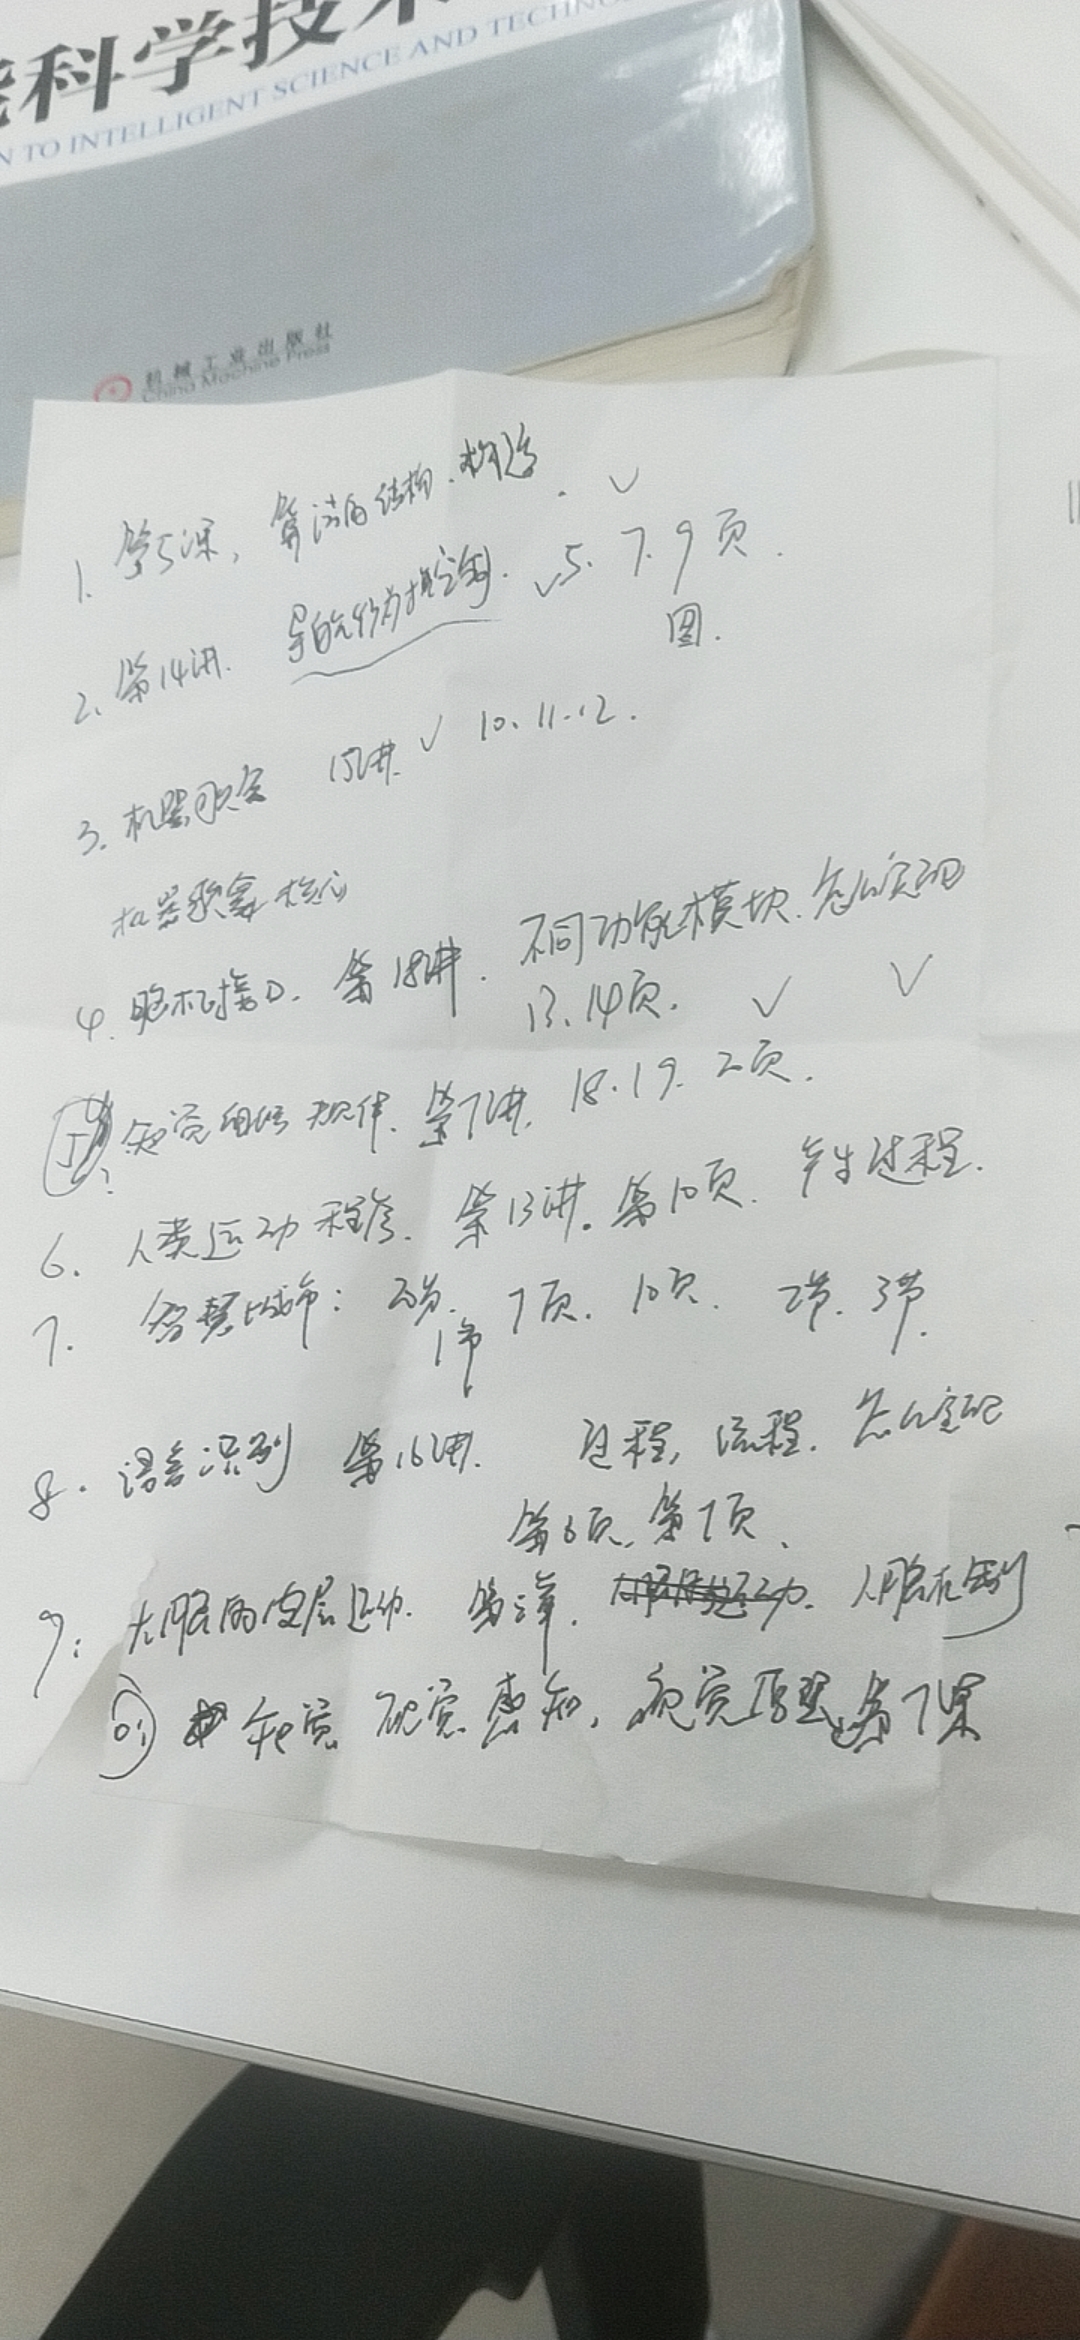 科学技术
N TO INTELLIGENT SCIENCE AND TECHNO
机械工业出版社
China Machine Press
1. 第5课, 算法的结构、构造. ✓
2. 第14讲. 导航行为控制. ✓ 5. 7. 9页.
图.
3. 机器歌舍 15讲 ✓ 10. 11. 12.
机器 核心
4. 脑机接口. 第18讲. 不同功能模块. 怎么实现
13. 14页. ✓ ✓
5. 知觉组织规律. 第7讲. 18. 19. 二页.
6. 人类运动程序. 第13讲. 第10页. 产生过程.
7. 智慧城市: 7页. 10页. 2节. 3节.
1节
8. 语音识别 第16讲. 过程, 流程. 怎么实现
第6页. 第7页.
9: 大脑的皮层运动. 第 章. 人脑机制
10. 知觉 视觉感知, 视觉原理 第7课